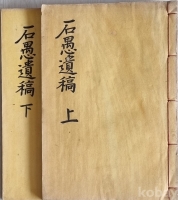 石愚遺稿 上
石愚遺稿 下